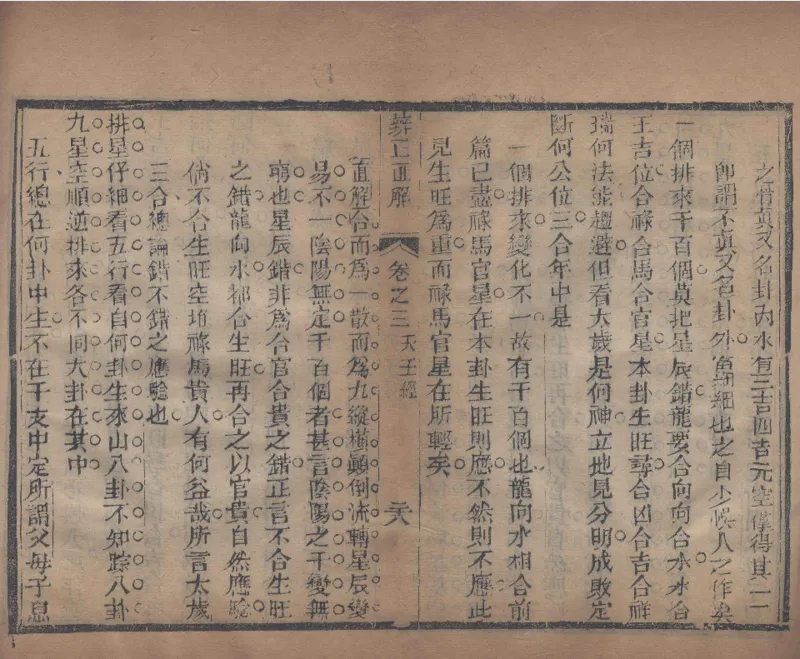 之真又名卦內水有三吉四吉元空僅得其一二
即謂不真又名卦外 細細也之自少悞人之作矣
一個排來千百個莫把星辰錯龍要合向向合水水合
王吉位合祿合馬合官星本卦生旺尋合凶合吉合祥
瑞何法能趨避但看太歲是何神立地見分明成敗定
斷何公位三合年中是
一個排來變化不一故有千百個也龍向水相合前
篇已盡祿馬官星在本卦生旺則應不然則不應此
見生旺爲重而祿馬官星在所輕矣
辨正直解
卷之三
天玉經
直解合而爲一散而爲九縱橫顛倒流轉星辰變
易不一陰陽無定千百個者甚言陰陽之千變無
窮也星辰錯非爲合官合貴之錯正言不合生旺
之錯龍向水都合生旺再合之以官貴自然應驗
倘不合生旺空堆祿馬貴人有何益哉所言太歲
三合總論錯不錯之應驗也
排星仔細看五行看自何卦生來山八卦不知踪八卦
九星空順逆排來各不同大卦在其中
五行總在何卦中生不在干支中定所謂父母子息